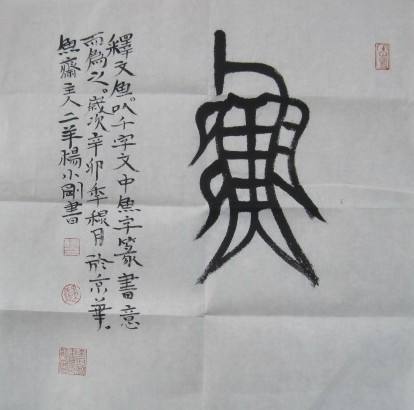 魚
釋文魚。以千字文中魚字篆書意
而為之。歲次辛卯年月於京華。
魚齋主人二羊楊小剛書